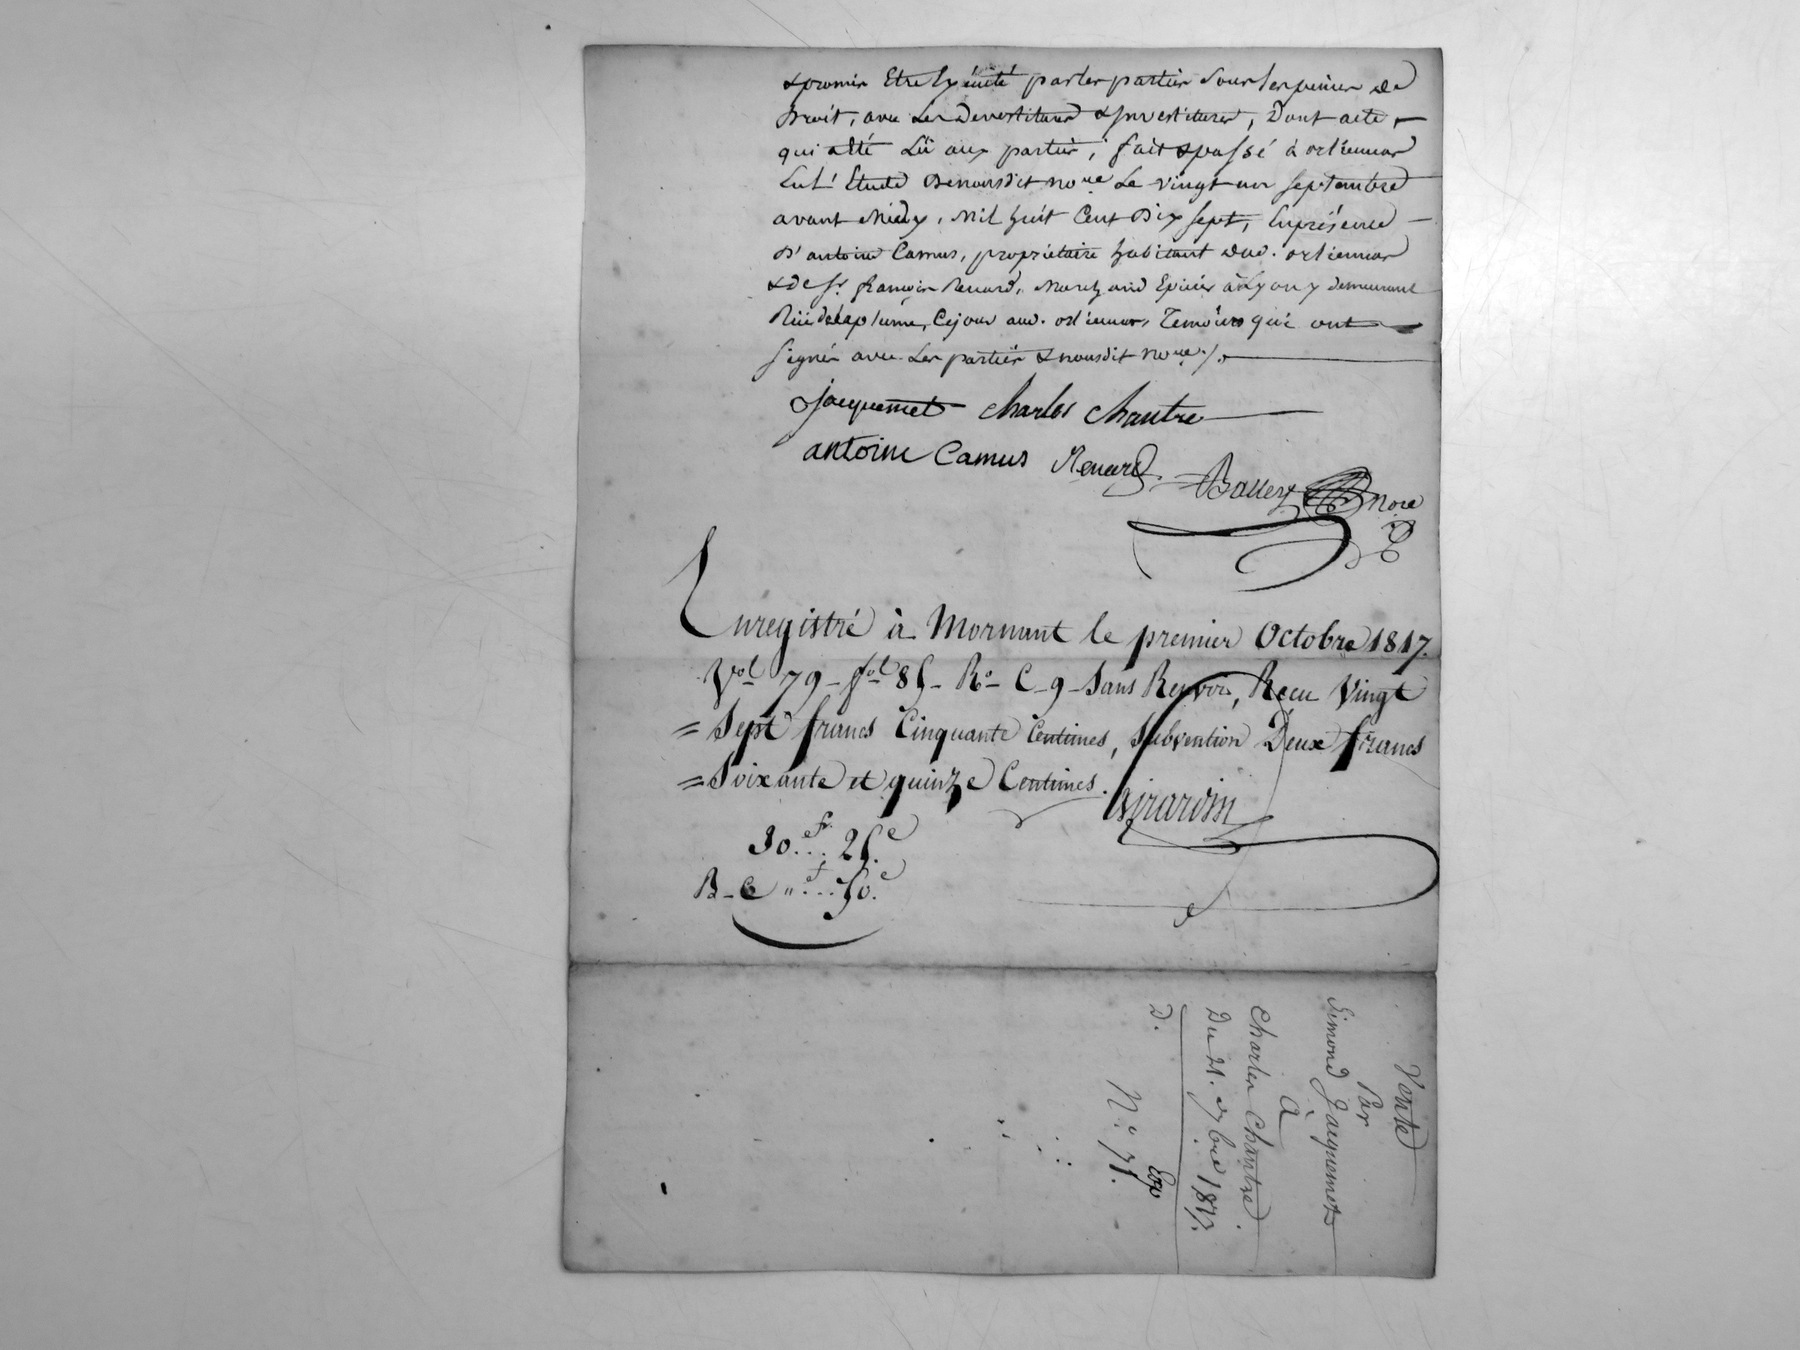 & promis Etre Exécuté par les parties sous les peines de
Droit, avec les Devestitures & Investitures, Dont acte
qui a Eté Lü aux parties, fait & passé à orliennas
En l'Etude De nousdit no.re Le vingt un septembre
avant Midy, Mil huit Cent Dix sept, En présence
D'antoine Camus, propriétaire habitant aud. orliennas
& de Sr. françois Renard, Marchand Epicier à Lyon y demeurant
Rüe de la plume, Cejour aud. orliennas, Temoins qui ont
signés avec Les parties & nousdit no.re /.
Jacquemet Charles Chantre
antoine Camus Renard. no.re
Enregistré à Mornant le premier Octobre 1817.
Vol. 79 fol. 85. Ro. C. 9 Sans Renvoi, Recu Vingt
= Sept francs Cinquante Centimes, Subvention Deux francs
= Soixante et quinze Centimes. Girardin
30.f... 25.c
R - C "f... 50.c
Vente
Par
Simond Jacquemet
à
Charles Chantre.
Du 21. 7bre 1817.
D. Exp
N.o 71.